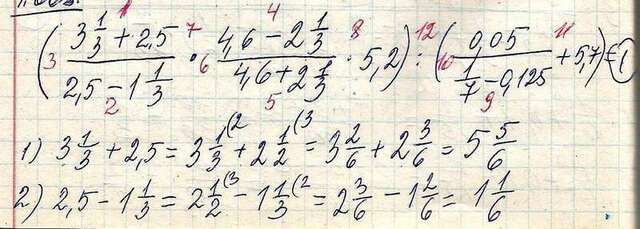 (3 1/3 + 2,5 / 2,5 - 1 1/3 · 4,6 - 2 1/3 / 4,6 + 2 1/3 · 5,2) : (0,05 / 1/7 - 0,125 + 5,7) = 1
1) 3 1/3 + 2,5 = 3 1/3 (2 + 2 1/2 (3 = 3 2/6 + 2 3/6 = 5 5/6
2) 2,5 - 1 1/3 = 2 1/2 (3 - 1 1/3 (2 = 2 3/6 - 1 2/6 = 1 1/6